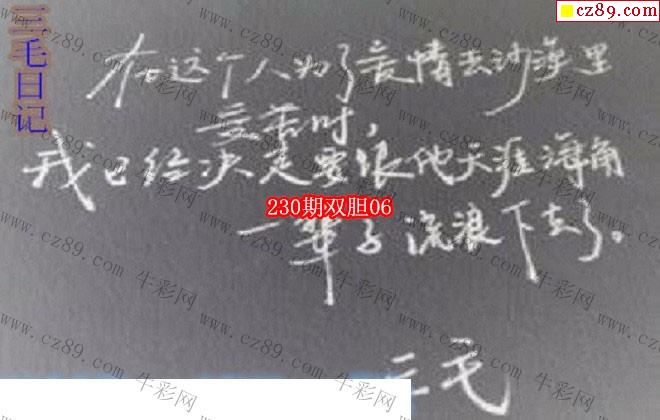 三毛日记
cz89.com
在这个人为了爱情去沙漠里
受苦时,
我已经决定要跟他天涯海角
230期双胆06
一辈子流浪下去了。
三毛
www.cz89.com 牛彩网